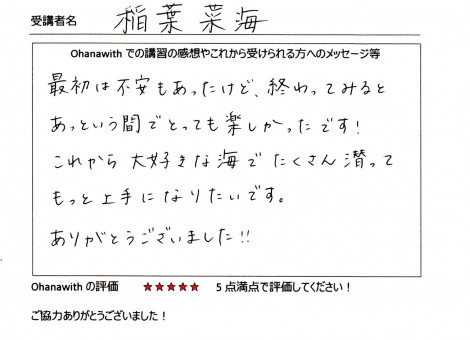 受講者名 稲葉 菜海
Ohanawith での講習の感想やこれから受けられる方へのメッセージ等
最初は不安もあったけど、終わってみると
あっという間でとっても楽しかったです!
これから大好きな海でたくさん潜って
もっと上手になりたいです。
ありがとうございました!!
Ohanawith の評価 ★★★★★ 5 点満点で評価してください!
ご協力ありがとうございました!